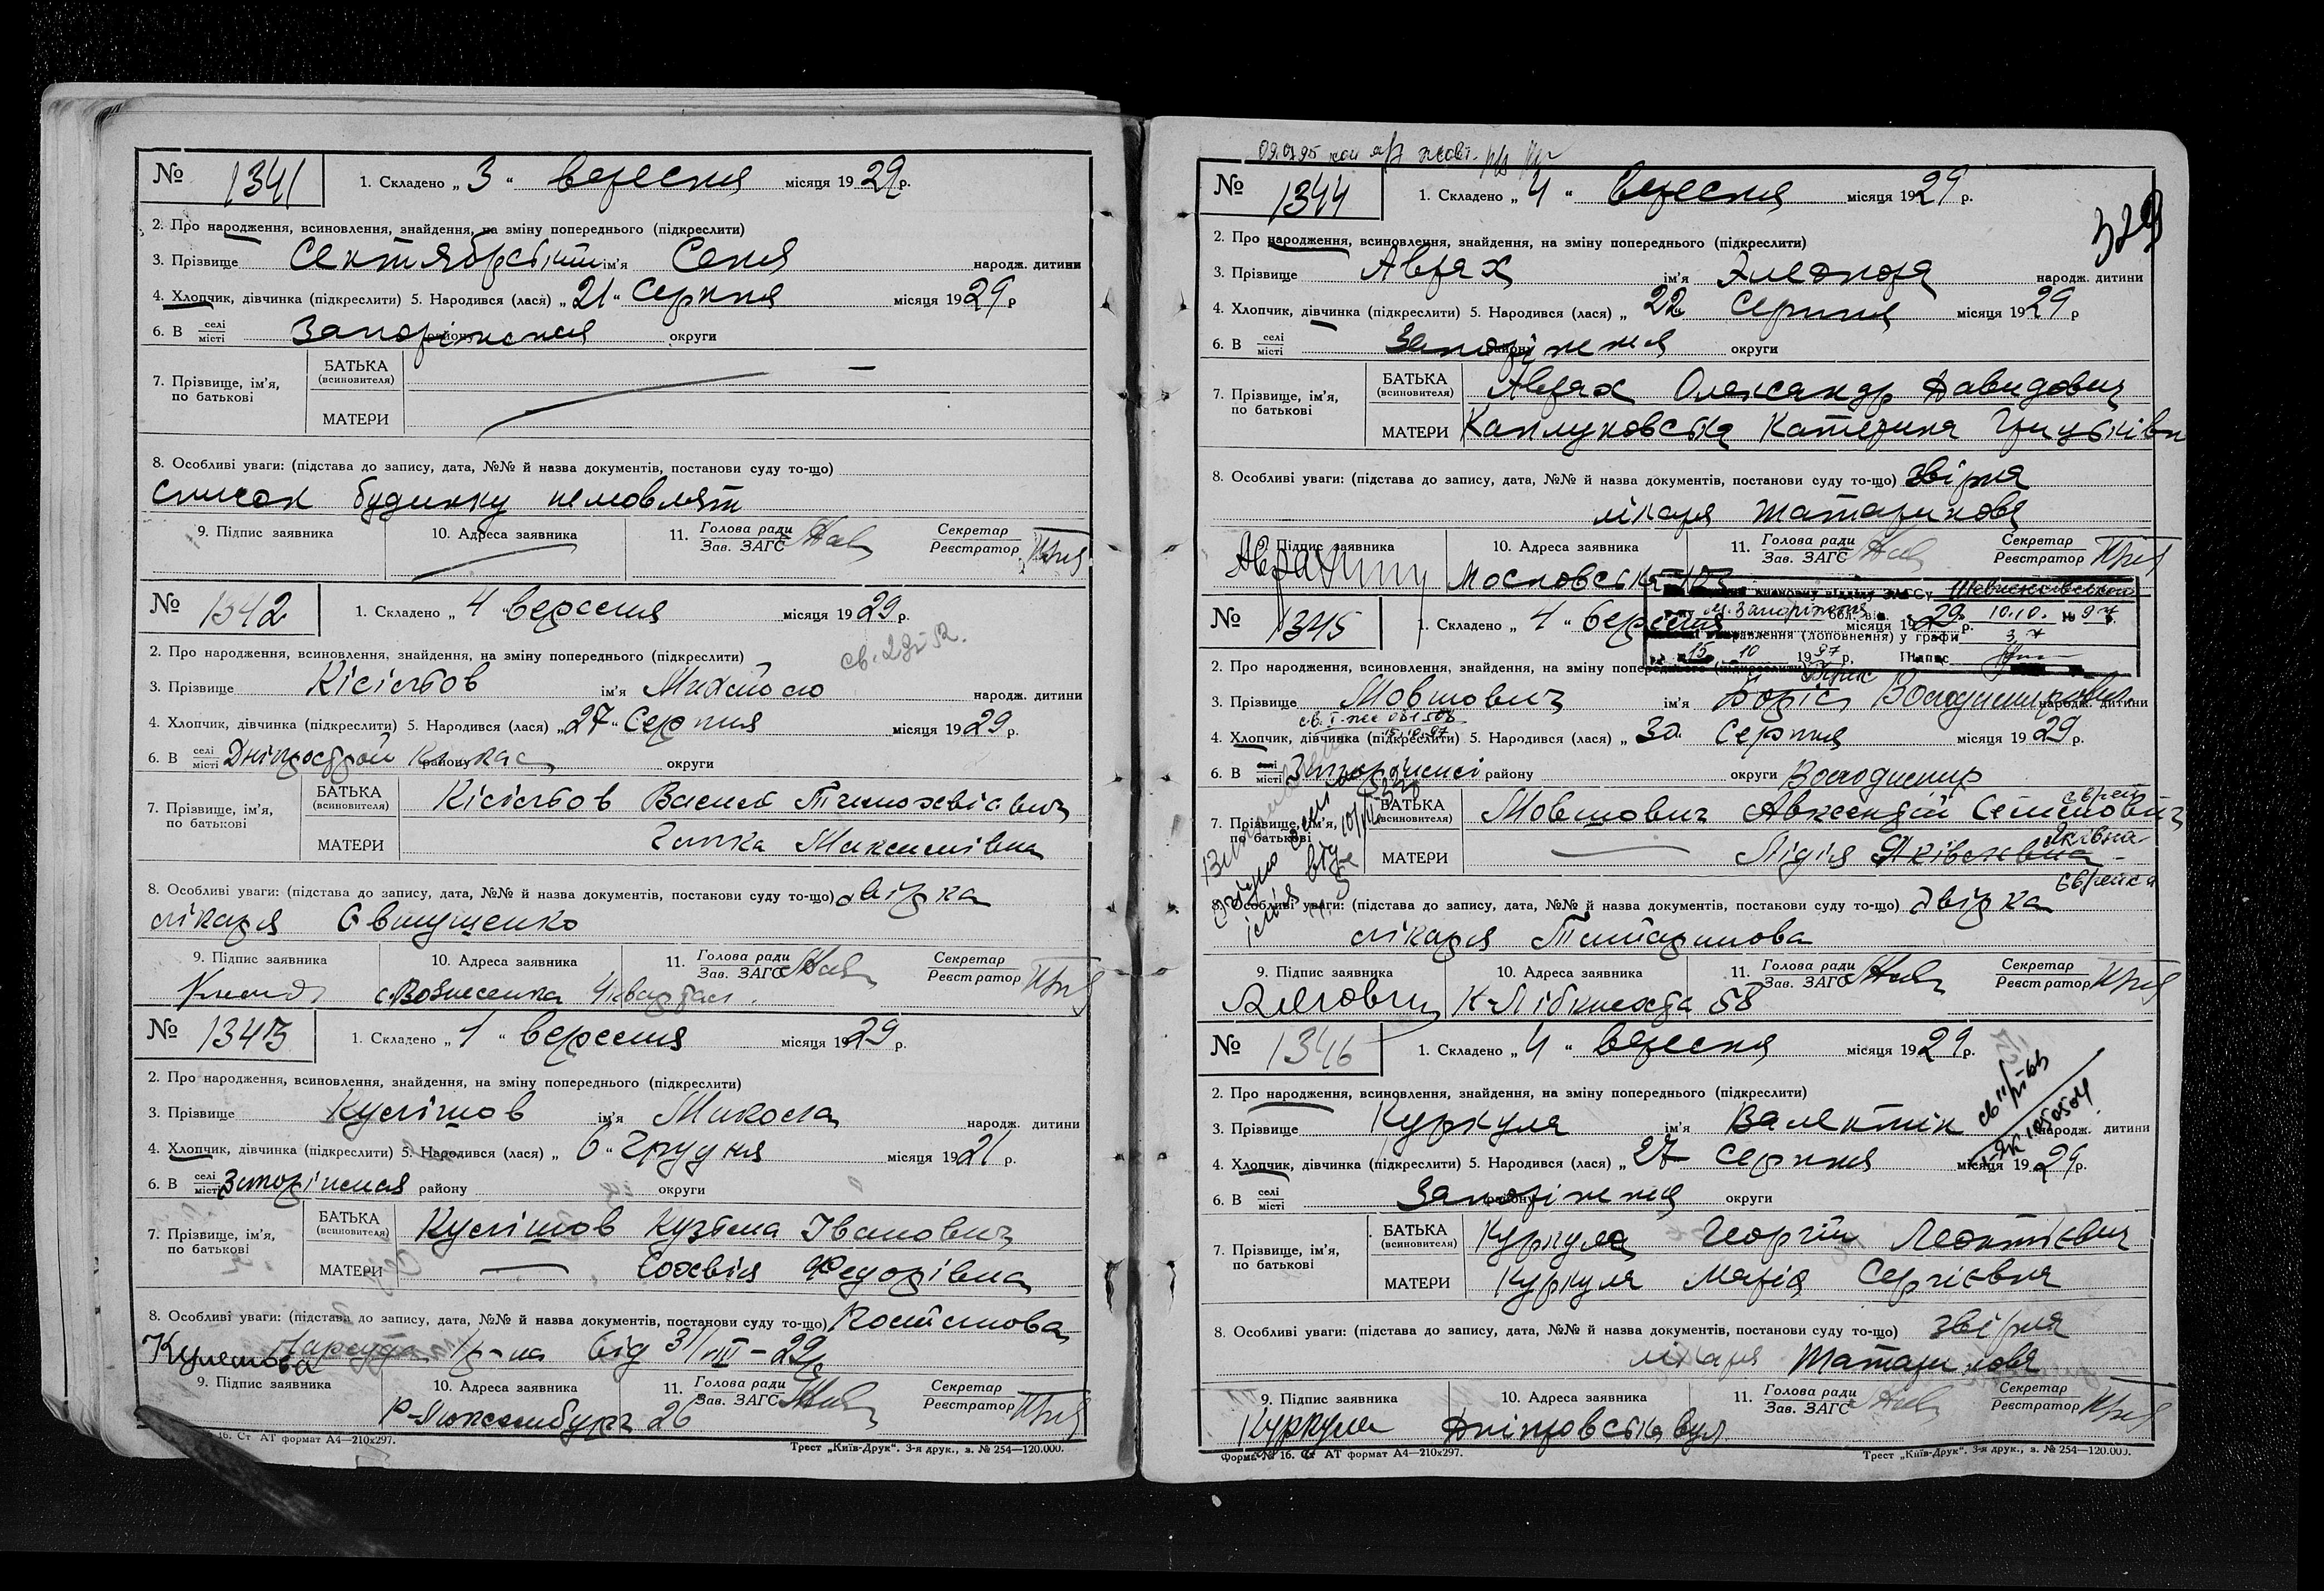 № 1341 1. Складено „ 3 “ вересня місяця 1929 р.
2. Про народження, всиновлення, знайдення, на зміну попереднього (підкреслити)
3. Прізвище ім'я Сеня народж. дитини
4. Хлопчик, дівчинка (підкреслити) 5. Народився (лася) „ 21 “ Серпня місяця 1929 р
6. В селі місті Запоріжжя району округи
7. Прізвище, ім'я, по батькові
БАТЬКА (всиновителя)
МАТЕРИ
8. Особливі уваги: (підстава до запису, дата, №№ й назва документів, постанови суду то-що)
список будинку немовлят
9. Підпис заявника 10. Адреса заявника 11. Голова ради Зав. ЗАГС Секретар Реєстратор
№ 1342 1. Складено „ 4 “ вересня місяця 1929 р.
2. Про народження, всиновлення, знайдення, на зміну попереднього (підкреслити)
3. Прізвище Кісільов ім'я народж. дитини
4. Хлопчик, дівчинка (підкреслити) 5. Народився (лася) „ 27 “ Серпня місяця 1929 р.
6. В селі місті Дніпрострой Кічкас району округи
7. Прізвище, ім'я, по батькові
БАТЬКА (всиновителя) Кісільов Василь
МАТЕРИ Максимівна
8. Особливі уваги: (підстава до запису, дата, №№ й назва документів, постанови суду то-що) звірка
лікаря Євтушенко
9. Підпис заявника 10. Адреса заявника 11. Голова ради Зав. ЗАГС Секретар Реєстратор
с. Вознесенка 4 квартал
№ 1343 1. Складено „ “ вересня місяця 1929 р.
2. Про народження, всиновлення, знайдення, на зміну попереднього (підкреслити)
3. Прізвище Кулішов ім'я Микола народж. дитини
4. Хлопчик, дівчинка (підкреслити) 5. Народився (лася) „ 6 “ Грудня місяця 1921 р.
6. В селі місті Запоріжжя району округи
7. Прізвище, ім'я, по батькові
БАТЬКА (всиновителя) Кулішов Кузьма Іванович
МАТЕРИ — Софвія Федорівна
8. Особливі уваги: (підстава до запису, дата, №№ й назва документів, постанови суду то-що) Постанова
Нарсуда р-на від
Кулешова
9. Підпис заявника 10. Адреса заявника 11. Голова ради Зав. ЗАГС Секретар Реєстратор
Р-Люксембург 26
16. Ст АТ формат А4—210х297. Трест „Київ-Друк“. 3-я друк., з. № 254—120.000.
329
№ 1344 1. Складено „ 4 “ вересня місяця 1929 р.
2. Про народження, всиновлення, знайдення, на зміну попереднього (підкреслити)
3. Прізвище Аврах ім'я Элеонора народж. дитини
4. Хлопчик, дівчинка (підкреслити) 5. Народився (лася) „ 22 Серпня місяця 1929 р
6. В селі місті Запоріжжя району округи
7. Прізвище, ім'я, по батькові
БАТЬКА (всиновителя) Аврах Олександр Давидович
МАТЕРИ Каплуновська Катерина
8. Особливі уваги: (підстава до запису, дата, №№ й назва документів, постанови суду то-що) звірка
лікаря Татаринова
9. Підпис заявника 10. Адреса заявника 11. Голова ради Зав. ЗАГС Секретар Реєстратор
Московська
№ 1345 1. Складено „ 4 “ вересня місяця 1929 р.
м. Запоріжжя 10.10. 97
15 10 1997 р. Підпис
2. Про народження, всиновлення, знайдення, на зміну попереднього (підкреслити)
3. Прізвище Мовшович ім'я Боріс Володимирович народж. дитини
4. Хлопчик, дівчинка (підкреслити) 5. Народився (лася) „ 30 Серпня місяця 1929 р.
6. В селі місті Запоріжжі району округи
Володимир
7. Прізвище, ім'я, по батькові
БАТЬКА (всиновителя) Мовшович Авксендій Семенович еврей
МАТЕРИ — Лідія Яківна
еврейка
8. Особливі уваги: (підстава до запису, дата, №№ й назва документів, постанови суду то-що) Звірка
лікаря Татаринова
9. Підпис заявника 10. Адреса заявника 11. Голова ради Зав. ЗАГС Секретар Реєстратор
К-Лібкнехта 58
№ 1346 1. Складено „ 4 “ вересня місяця 1929 р.
2. Про народження, всиновлення, знайдення, на зміну попереднього (підкреслити)
3. Прізвище Куркуля ім'я Валентін народж. дитини
4. Хлопчик, дівчинка (підкреслити) 5. Народився (лася) „ 27 серпня місяця 1929 р.
6. В селі місті Запоріжжя району округи
7. Прізвище, ім'я, по батькові
БАТЬКА (всиновителя) Куркуля Георгій Леонтієвич
МАТЕРИ Куркуля Марія Сергієвна
8. Особливі уваги: (підстава до запису, дата, №№ й назва документів, постанови суду то-що) звірка
лікаря Татаринова
9. Підпис заявника 10. Адреса заявника 11. Голова ради Зав. ЗАГС Секретар Реєстратор
Куркуля Дніпровська вул
Форма № 16. Ст АТ формат А4—210х297. Трест „Київ-Друк“. 3-я друк., з. № 254—120.000.